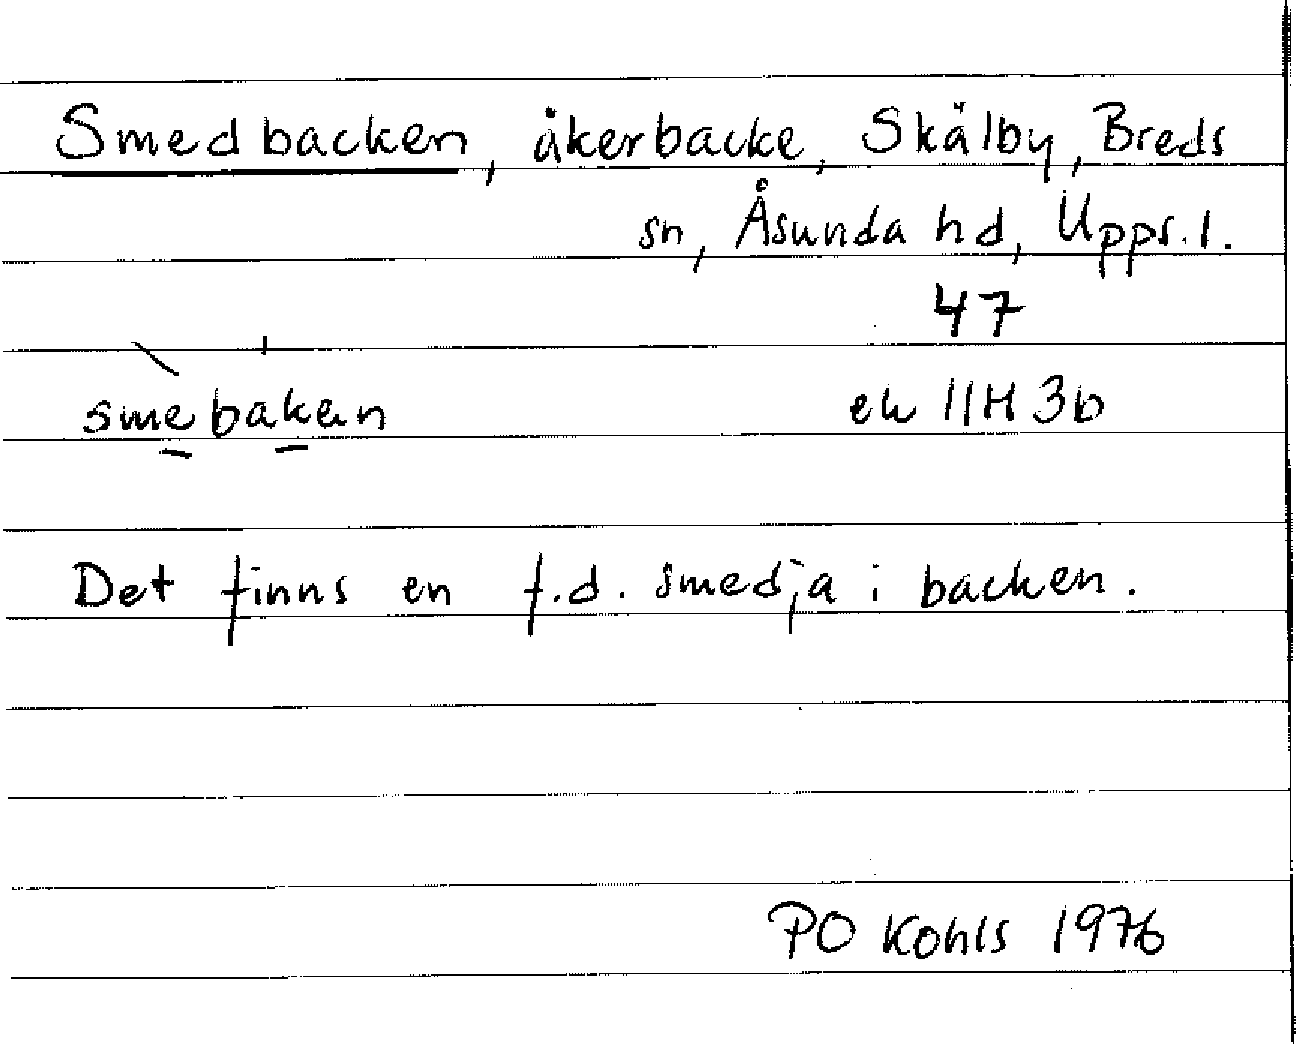 Smedbacken, åkerbacke, Skälby, Breds
sn, Åsunda hd, Upps. l.
47
smebakan ek 11H 3b
Det finns en f.d. smedja i backen.
PO Kohls 1976